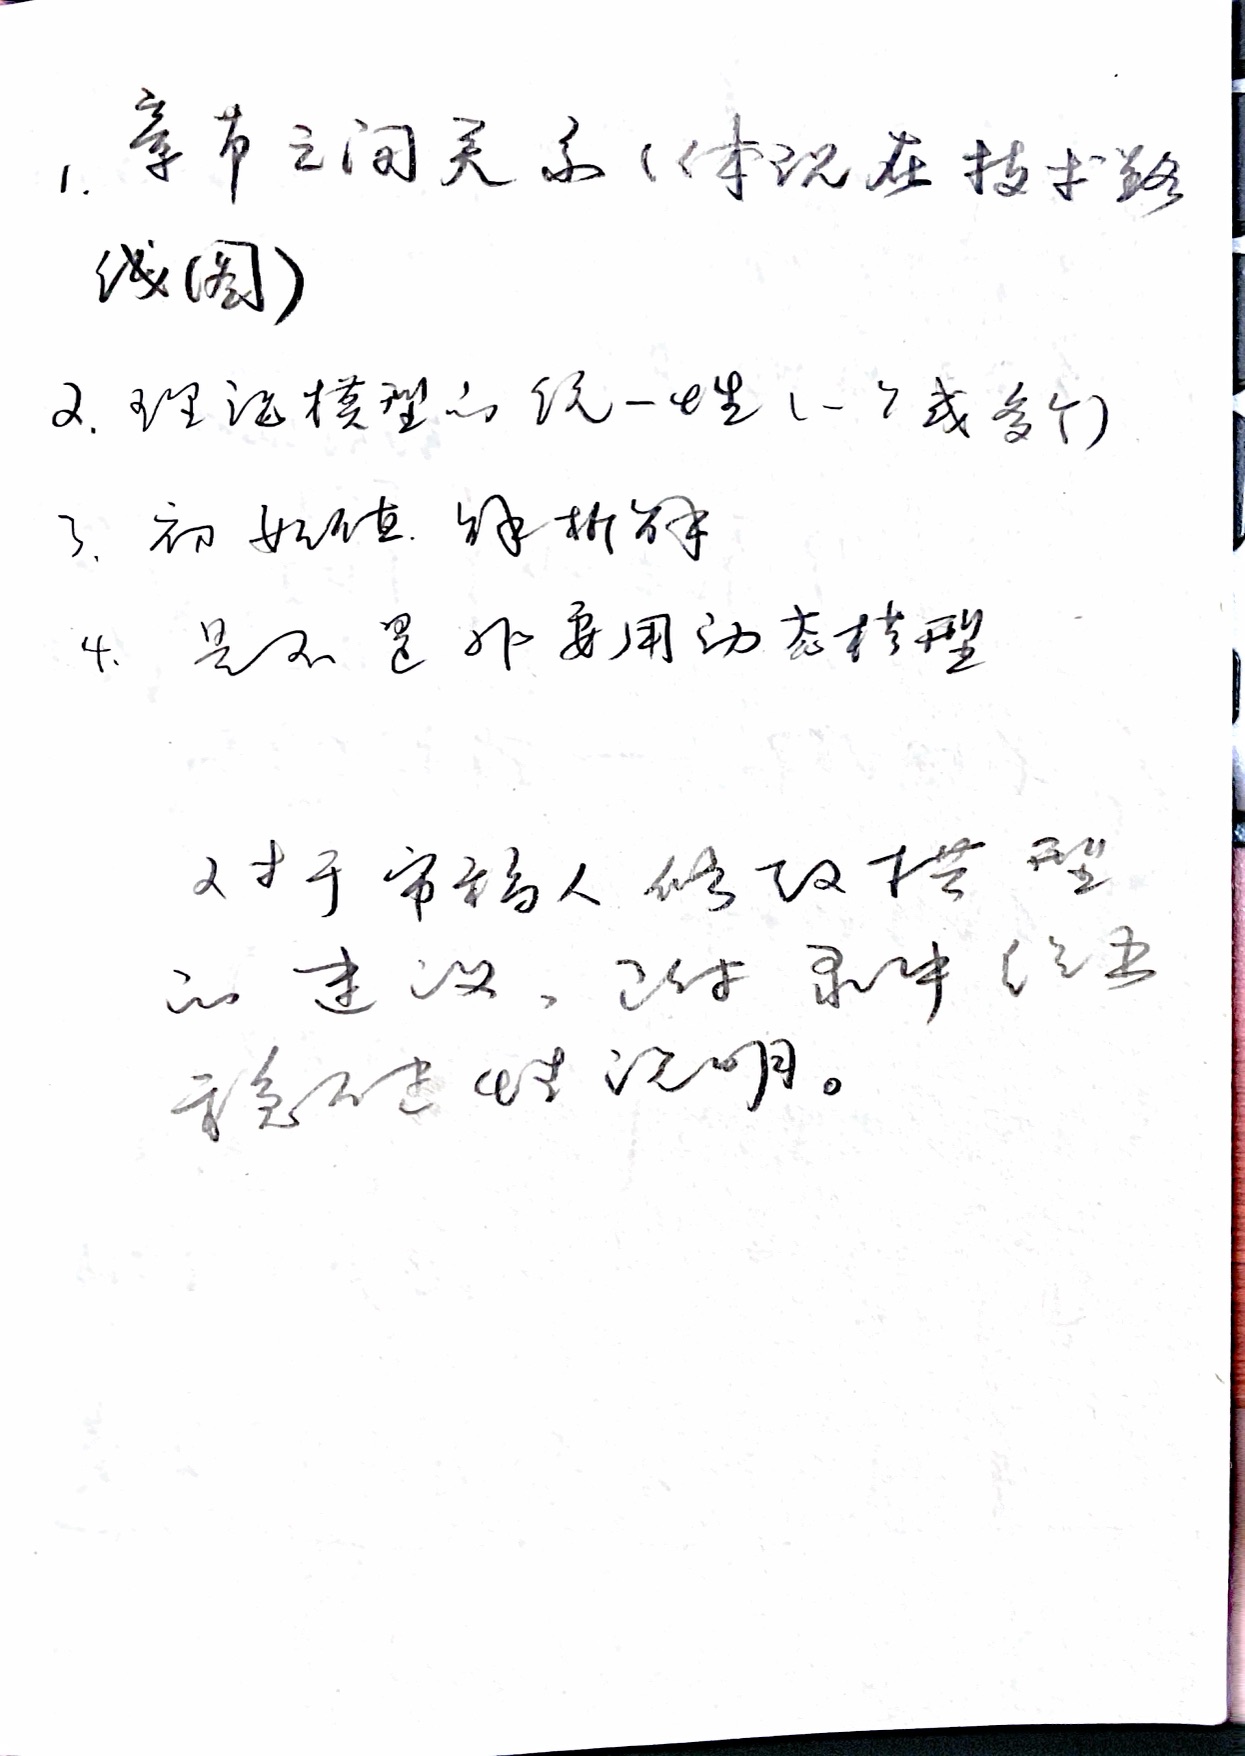 1. 章节之间关系(体现在技术路
线(图)
2. 理论模型的统一性(一个或多个)
3. 初始值. 解析解
4. 是不是非要用动态模型
对于审稿人修改模型
的建议,附录中给出
稳健性说明。